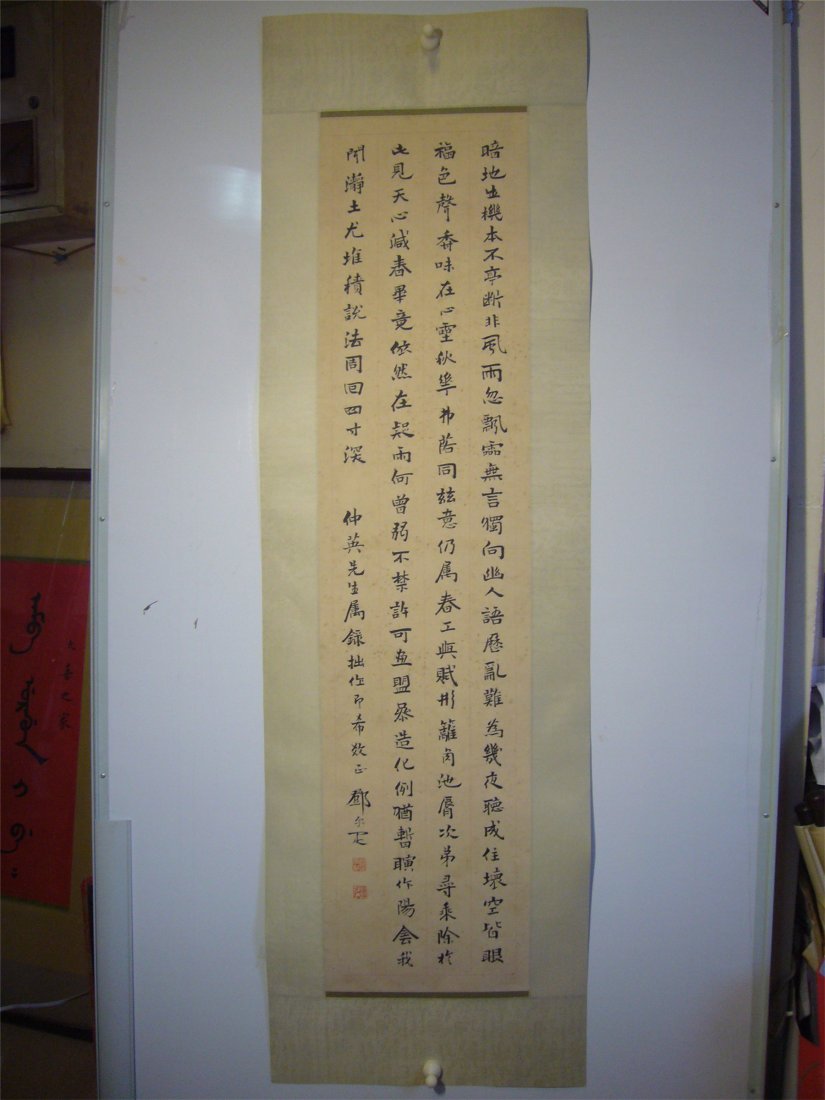 暗地生機本不亭斷非風雨忽飄霝無言獨向幽人語歷亂難為幾夜聽成住壞空皆眼
福色聲香味在心靈秋華弗落同茲意仍属春工與賦形籬角池脣次弟尋乘除於
此見天心減春畢竟依然在疑雨何曾弱不禁許可盟造化例猶暫作陽會我
閒瀞土尤堆積說法周回四寸深 仲英先生属錄拙作即希教正 鄧尔疋
之家